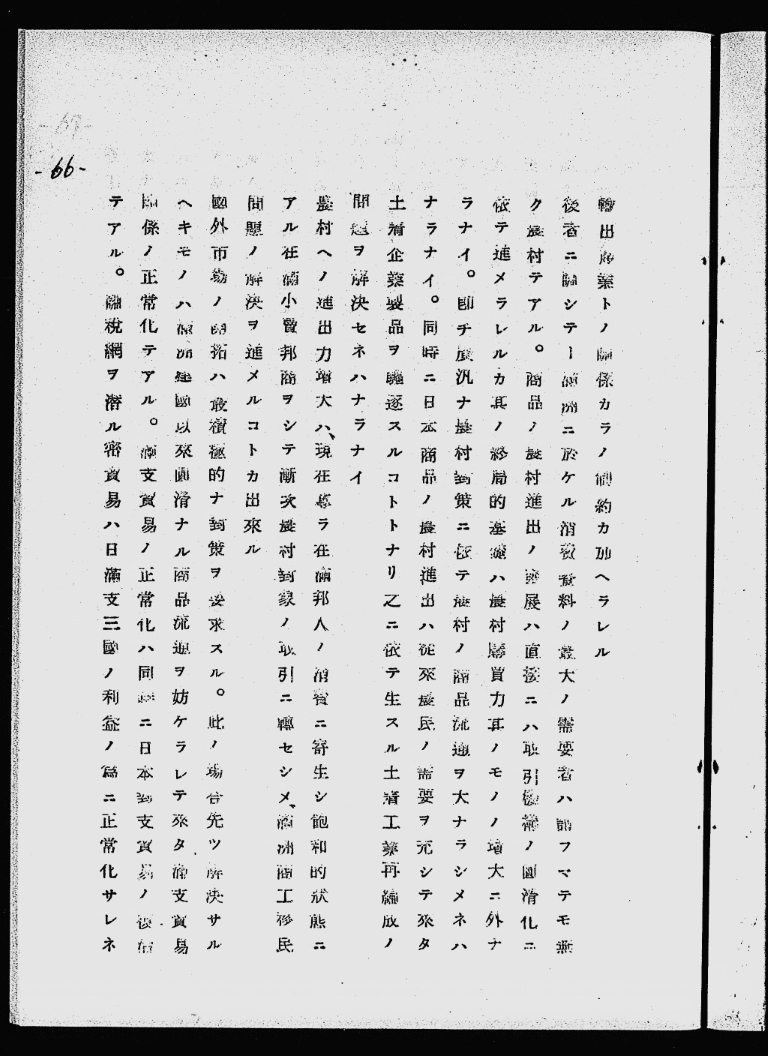 輸出産業トノ關係カラノ制約カ加ヘラレル
後者ニ關シテー滿洲ニ於ケル消費資料ノ最大ノ需要者ハ謂フマテモ無
ク農村テアル。商品ノ農村進出ノ發展ハ直接ニハ取引機構ノ圓滑化ニ
依テ進メラレルカ其ノ終局的基礎ハ農村購買力其ノモノノ增大ニ外ナ
ラナイ。卽チ廣汎ナ農村對策ニ依テ農村ノ商品流通ヲ大ナラシメネハ
ナラナイ。同時ニ日本商品ノ農村進出ハ從來農民ノ需要ヲ充シテ來タ
土着企業製品ヲ驅逐スルコトトナリ之ニ依テ生スル土着工業再編成ノ
問題ヲ解決セネハナラナイ
農村ヘノ進出力增大ハ、現在專ラ在滿邦人ノ消費ニ寄生シ飽和的狀態ニ
アル在滿小賣邦商ヲシテ漸次農村對象ノ取引ニ轉セシメ、滿洲商工移民
問題ノ解決ヲ進メルコトカ出來ル
國外市場ノ開拓ハ最積極的ナ對策ヲ要求スル。此ノ場合先ツ解決サル
ヘキモノハ滿洲建國以來圓滑ナル商品流通ヲ妨ケラレテ來タ滿支貿易
關係ノ正常化テアル。滿支貿易ノ正常化ハ同時ニ日本對支貿易ノ
テアル。關稅網ヲ潜ル密貿易ハ日滿支三國ノ利益ノ爲ニ正常化サレネ
-67-
-66-